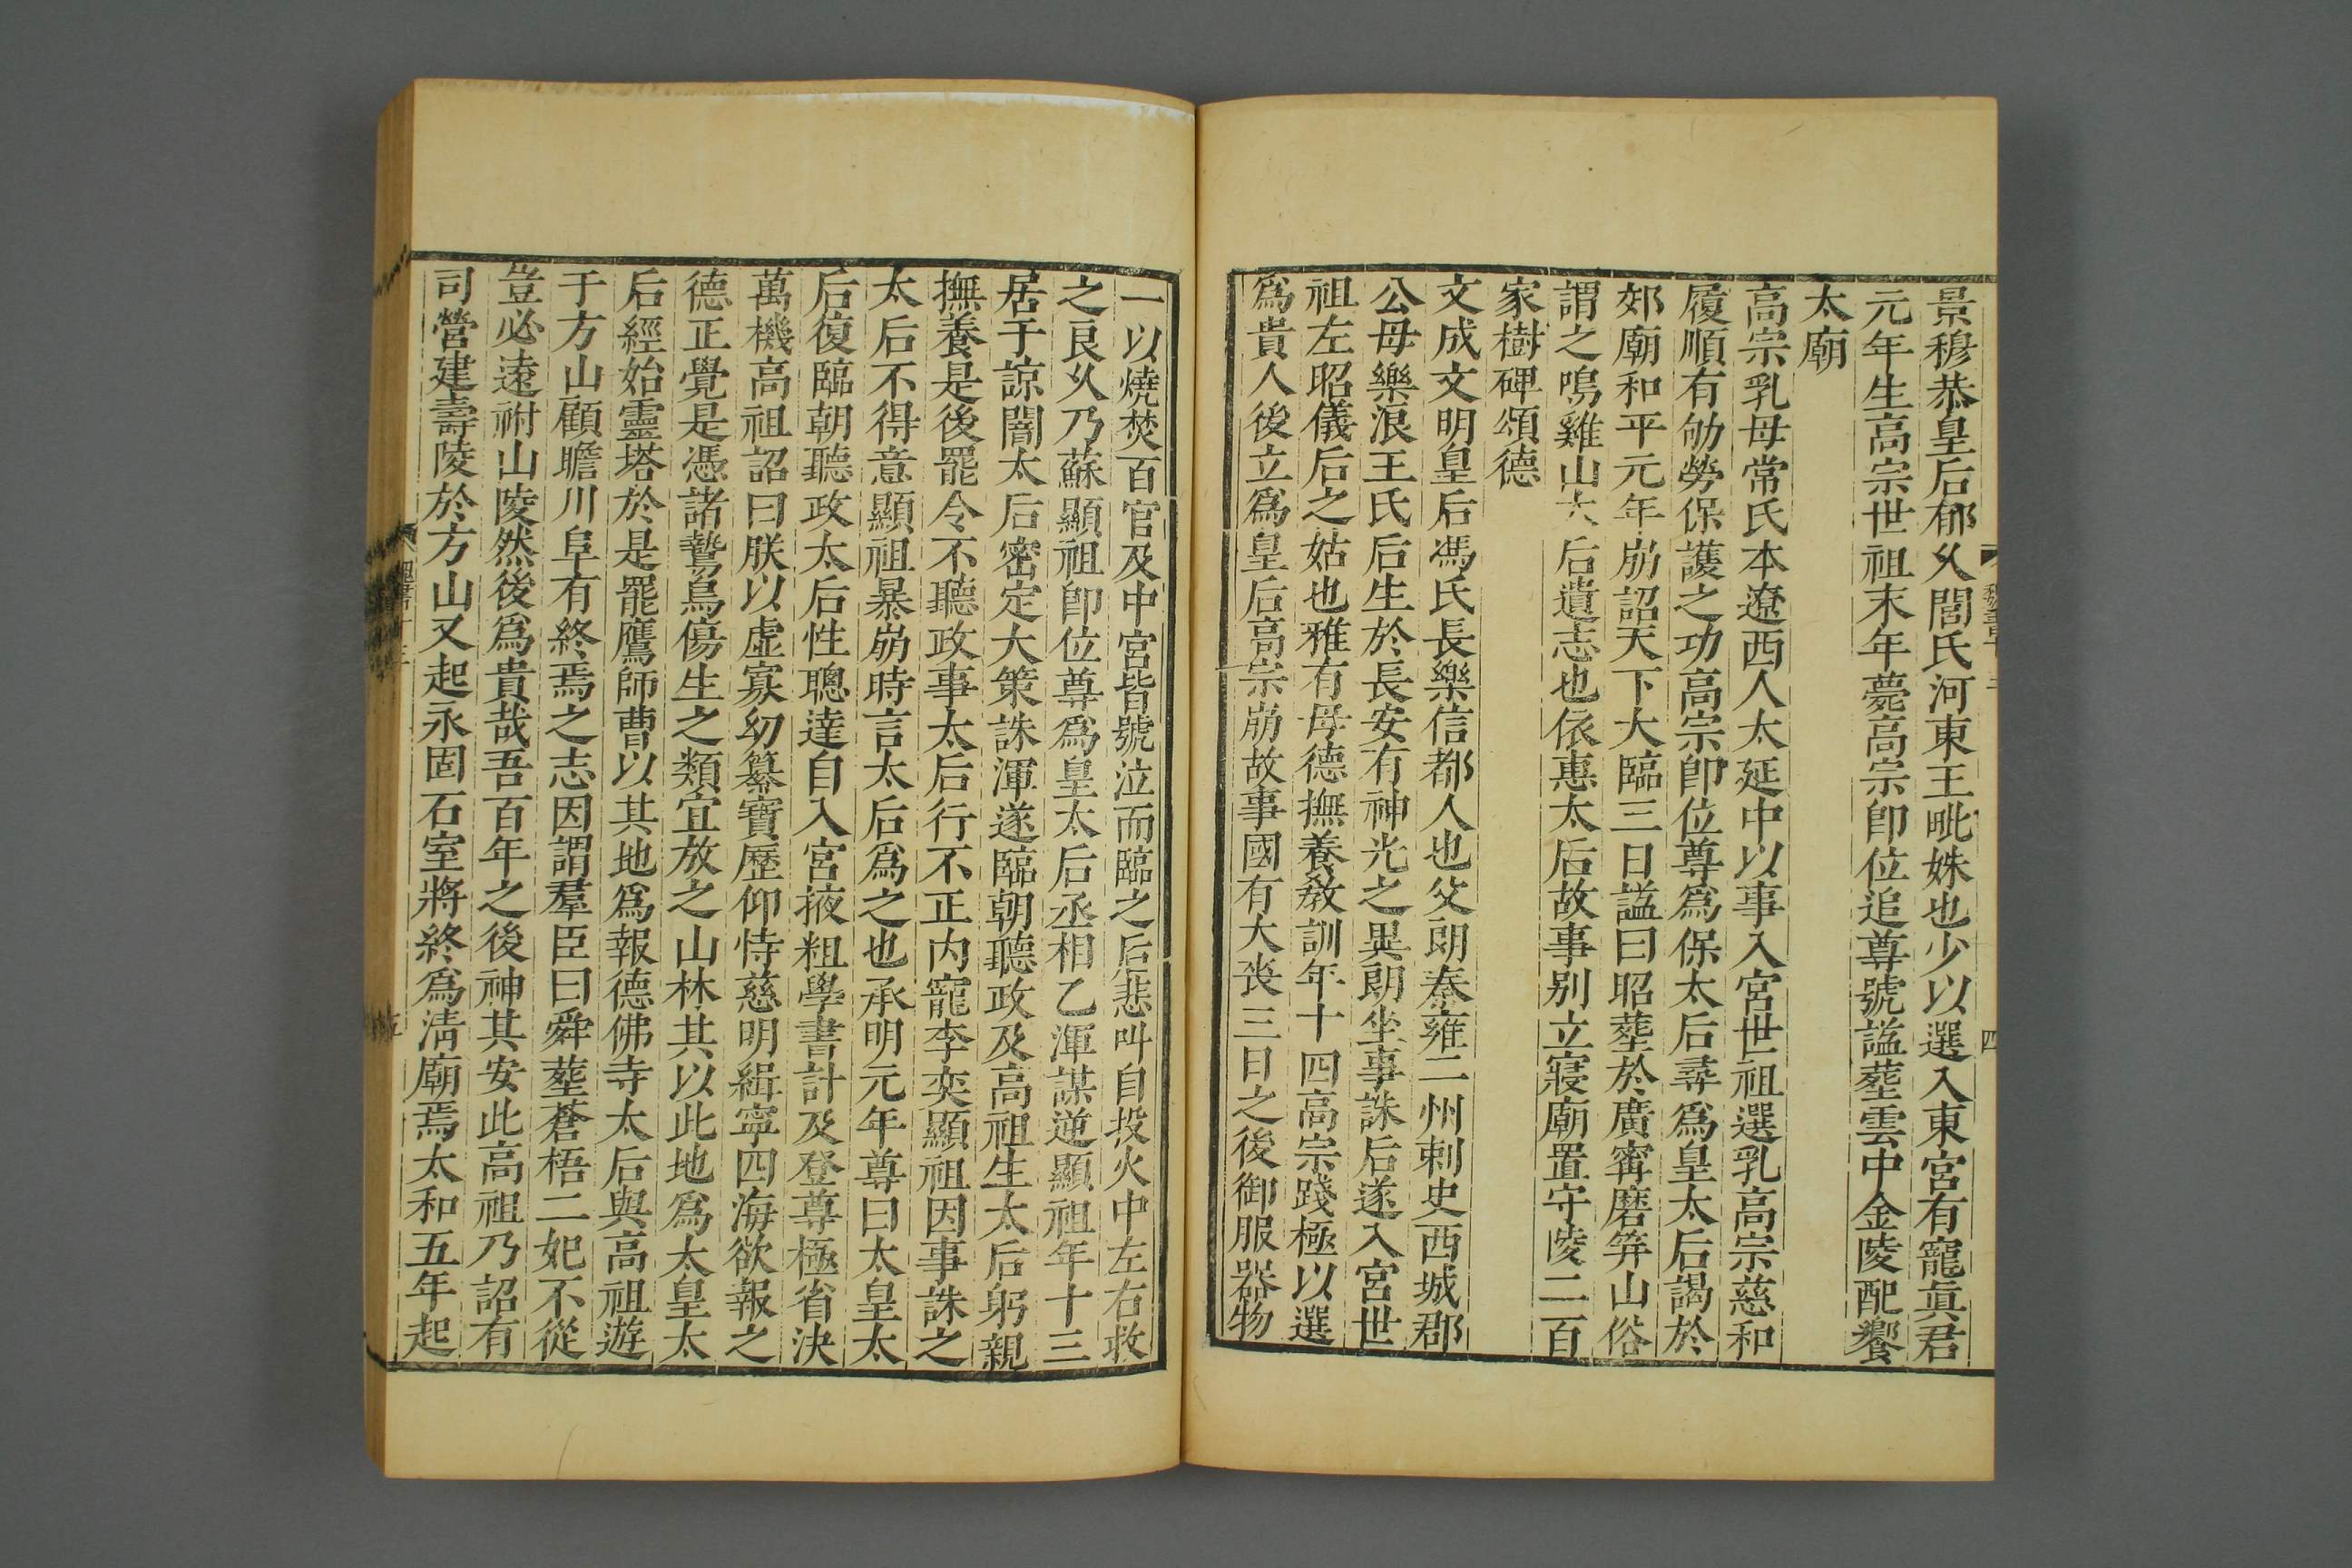 景穆恭皇后郁久閭氏河東王毗妹也少以選入東宮有寵眞君
元年生高宗世祖末年薨高宗卽位追尊號諡葬雲中金陵配饗
太廟
高宗乳母常氏本遼西人太延中以事入宮世祖選乳高宗慈和
履順有劬勞保護之功高宗卽位尊爲保太后尋爲皇太后謁於
郊廟和平元年崩詔天下大臨三日諡曰昭葬於廣甯磨笄山俗
謂之鳴雞山太后遺志也依惠太后故事別立寢廟置守陵二百
家樹碑頌德
文成文明皇后馮氏長樂信都人也父朗秦雍二州刺史西城郡
公母樂浪王氏后生於長安有神光之異朗坐事誅后遂入宮世
祖左昭儀后之姑也雅有母德撫養敎訓年十四高宗踐極以選
爲貴人後立爲皇后高宗崩故事國有大喪三日之後御服器物
一以燒焚百官及中宮皆號泣而臨之后悲叫自投火中左右救
之良久乃蘇顯祖卽位尊爲皇太后丞相乙渾謀逆顯祖年十三
居于諒闇太后密定大策誅渾遂臨朝聽政及高祖生太后躬親
撫養是後罷令不聽政事太后行不正內寵李奕顯祖因事誅之
太后不得意顯祖暴崩時言太后爲之也承明元年尊曰太皇太
后復臨朝聽政太后性聰達自入宮掖粗學書計及登尊極省決
萬機高祖詔曰朕以虛寡幼纂寶歷仰恃慈明緝寧四海欲報之
德正覺是憑諸鷙鳥傷生之類宜放之山林其以此地爲太皇太
后經始靈塔於是罷鷹師曹以其地爲報德佛寺太后與高祖遊
于方山顧瞻川阜有終焉之志因謂羣臣曰舜葬蒼梧二妃不從
豈必遠祔山陵然後爲貴哉吾百年之後神其安此高祖乃詔有
司營建壽陵於方山又起永固石室將終爲淸廟焉太和五年起